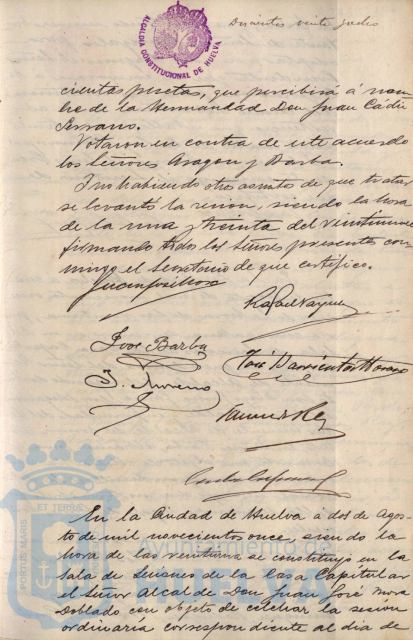 ALCALDIA CONSTITUCIONAL DE HUELVA
Doscientos veinte
cientas pesetas, que percibirá á nom-
bre de la Hermandad Don Juan Cádiz
Serrano.
Votaron en contra de este acuerdo
los Señores Aragon y Barba.
Y no habiendo otro asunto de que tratar,
se levantó la sesion, siendo la hora
de la una y treinta del veintinueve
firmando todos los Señores presentes con-
migo el Secretario de que certifico.
Rafael Vazquez
José Barba
José Barrientos Moreno
J. Moreno
En la Ciudad de Huelva a dos de Agos-
to de mil novecientos once, siendo la
hora de las veintiuna se constituyó en la
Sala de Sesiones de la Casa Capitular
el Señor Alcalde Don Juan José Mora
Doblado con objeto de celebrar la sesión
ordinaria correspondiente al dia de
PORTUS MARIS ET TERRAE
Ayuntamiento de